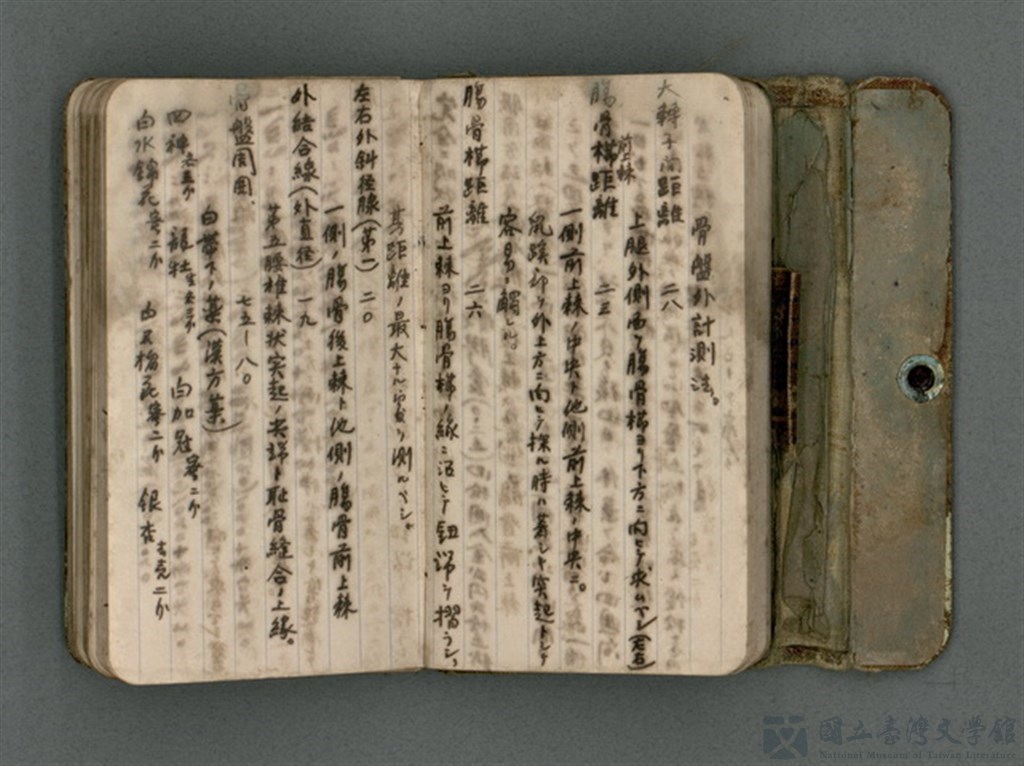 骨盤外計測法。
大轉子間距離 二八
上腿外側面ヲ腸骨櫛ヨリ下方ニ向ヒテ求ムベシ(左右)
腸骨前上棘距離 二三
一側前上棘ノ中央ト他側前上棘ノ中央ニ。
鼠蹊部ヲ外上方ニ向ヒテ探ル時ハ著シキ突起トシテ
容易ニ觸ヒル。
腸骨櫛距離 二六
前上棘ヨリ腸骨櫛ノ緣ニ沿ヒテ鈕ヲ
其距離ノ最大ナル ヲ測ルベシ
左右外斜徑線(第一) 二〇
一側ノ腸骨後上棘ト他側ノ腸骨前上棘
外結合線(外直徑) 一九
第五腰椎棘狀突起ノ尖端ト恥骨縫合ノ上緣。
骨盤周圍. 七五—八〇
白帶下ノ藥(漢方藥)
四神 龍牡 白加冠 二分
白水錦花 二分 白 花 二分 銀杏 二分
國立臺灣文學館
National Museum of Taiwan Literature